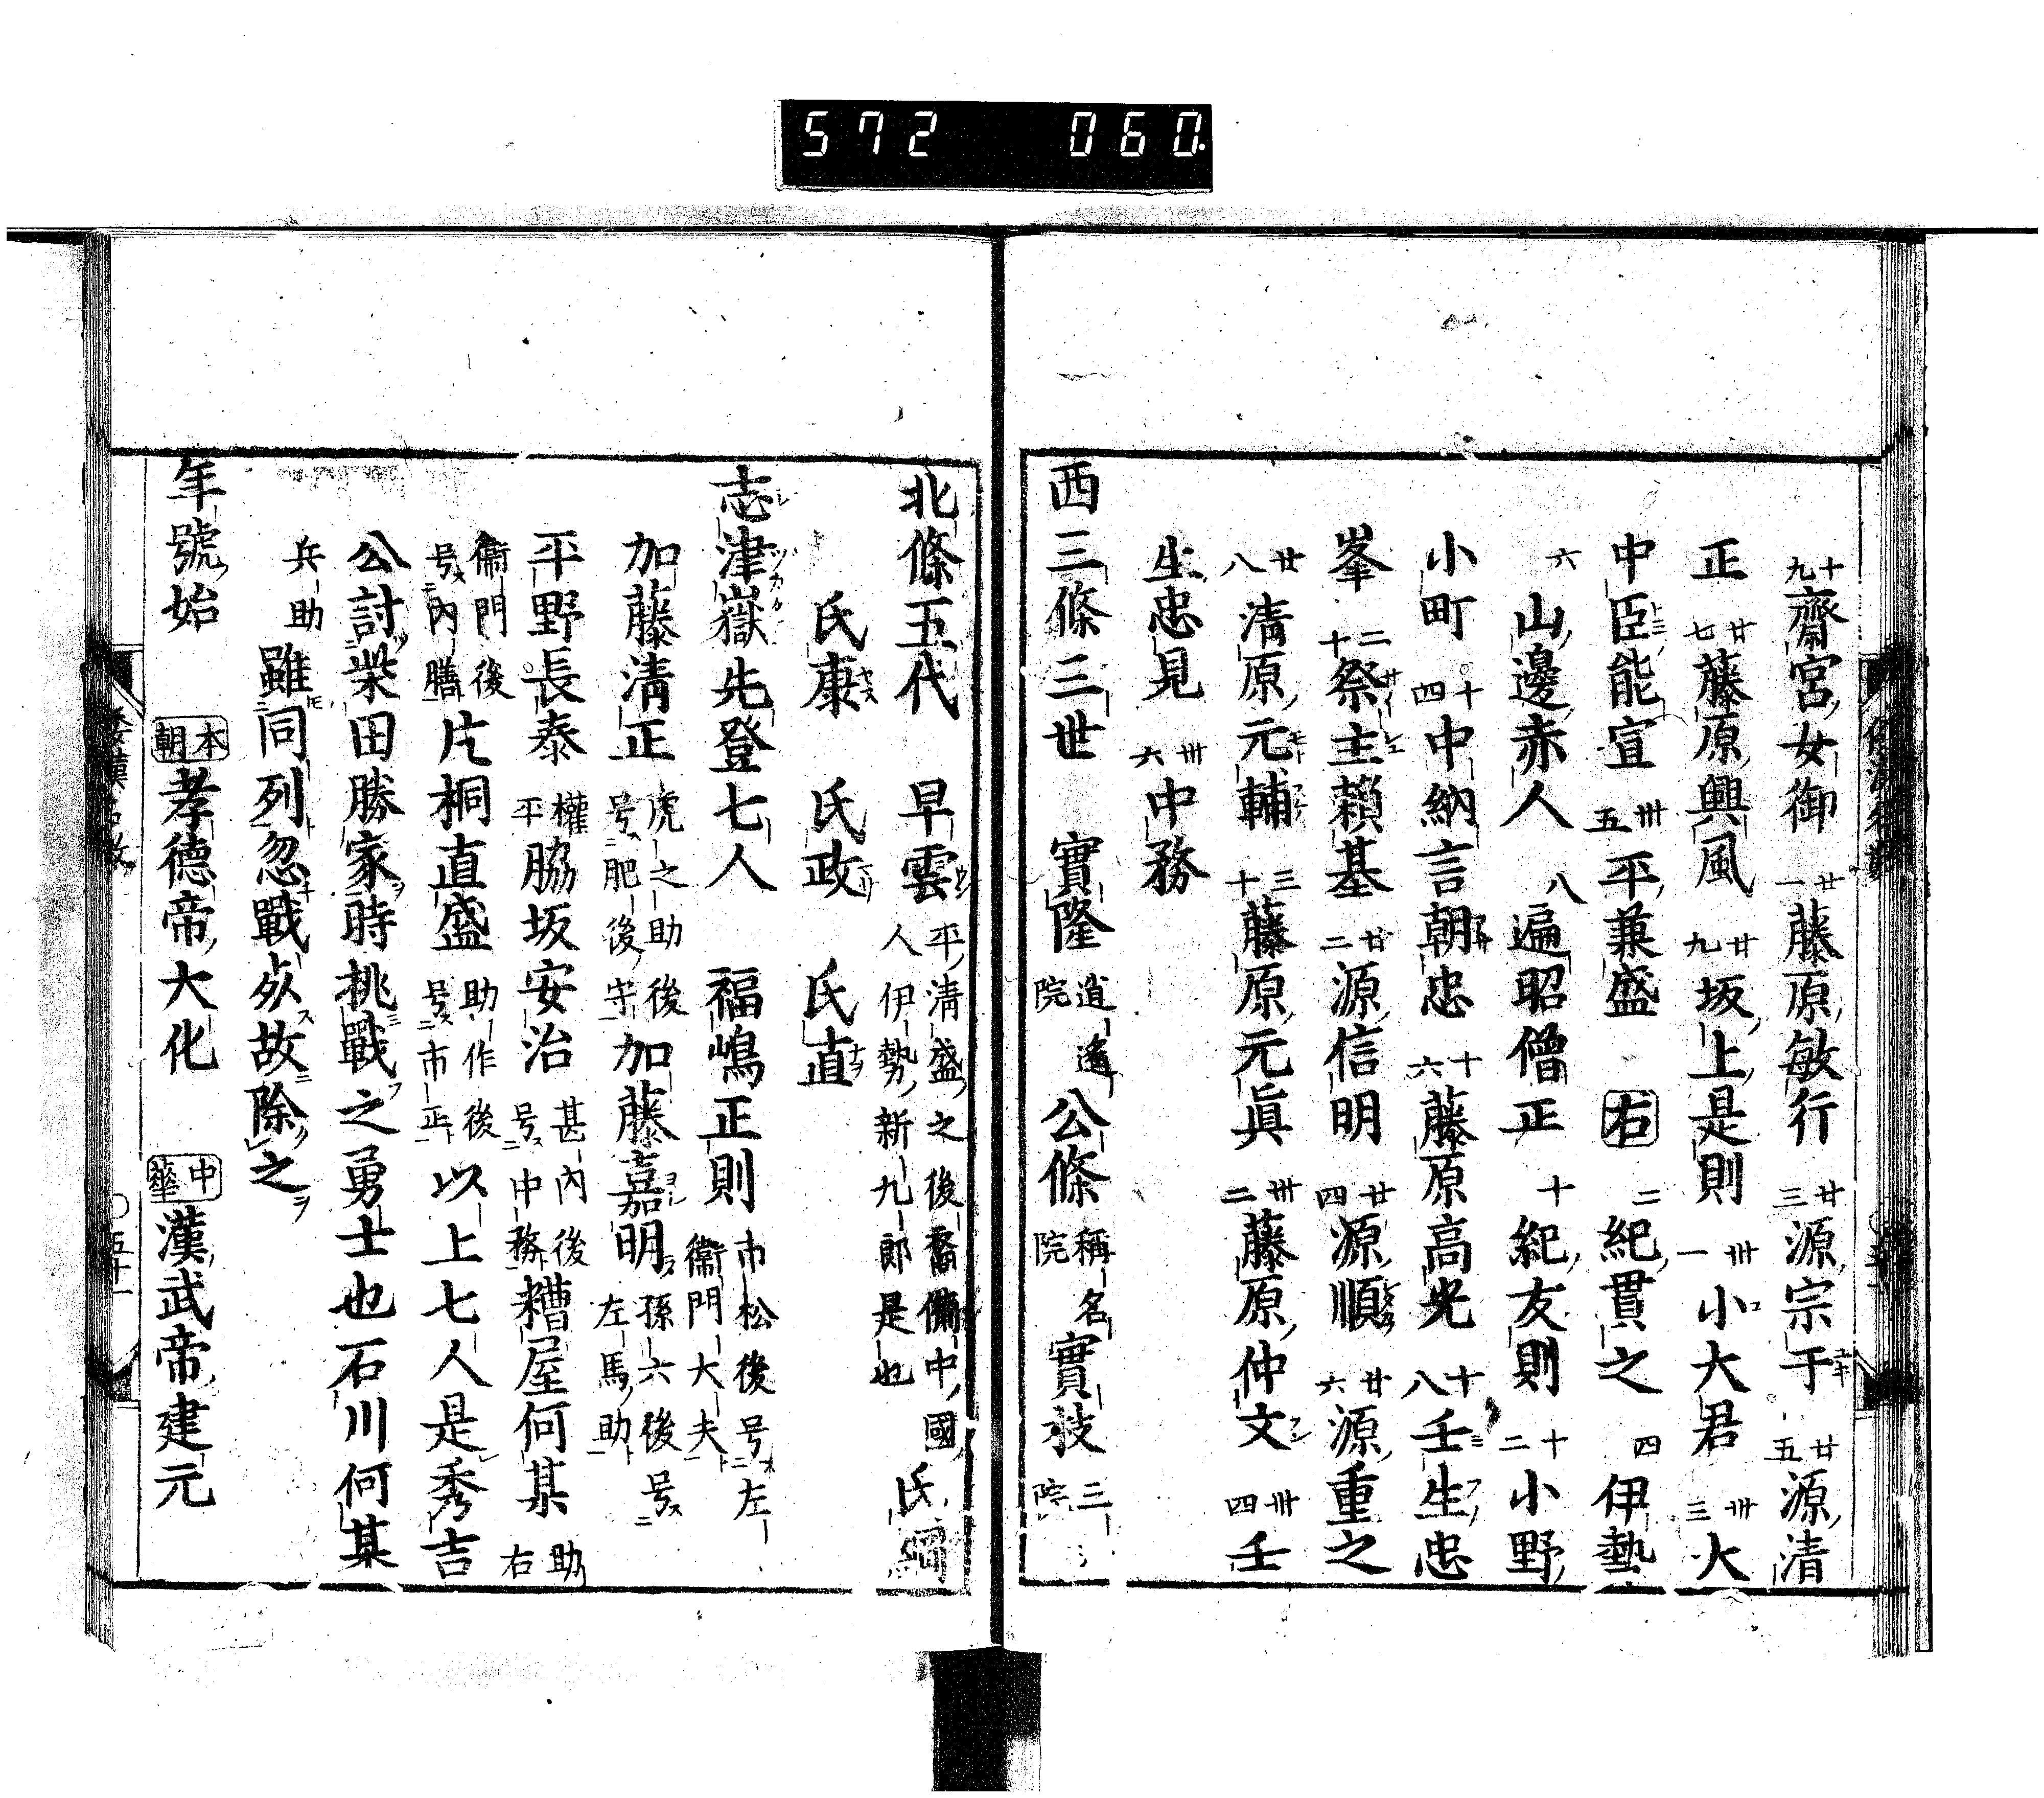 572 060.
十九齋宮女御 廿一藤原敏行 廿三源宗于 廿五源清
正 廿七藤原興風 廿九坂上是則 卅一小大君 卅三大
中臣能宣 卅五平兼盛 右 二紀貫之 四伊勢
六山邊赤人 八遍昭僧正 十紀友則 十二小野
小町 十四中納言朝忠 十六藤原高光 十八壬生忠
峯 二十祭主賴基 廿二源信明 廿四源順 廿六源重之
廿八清原元輔 三十藤原元眞 卅二藤原仲文 卅四壬
生忠見 卅六中務
西三條三世 實隆逍遙院 公條稱名院 實枝三院
北條五代 早雲平清盛之後裔備中國人伊勢新九郎是也 氏綱
氏康 氏政 氏直
志津嶽先登七人 福嶋正則市松後号左衞門大夫
加藤清正虎之助後号肥後守 加藤嘉明孫六後号左馬助
平野長泰權平 脇坂安治甚内後号中務 糟屋何某助右
衞門後号内膳 片桐直盛助作後号市正 以上七人是秀吉
公討柴田勝家時挑戰之勇士也石川何某
兵助 雖同列忽戰死故除之
年號始 本朝 孝德帝大化 中華 漢武帝建元